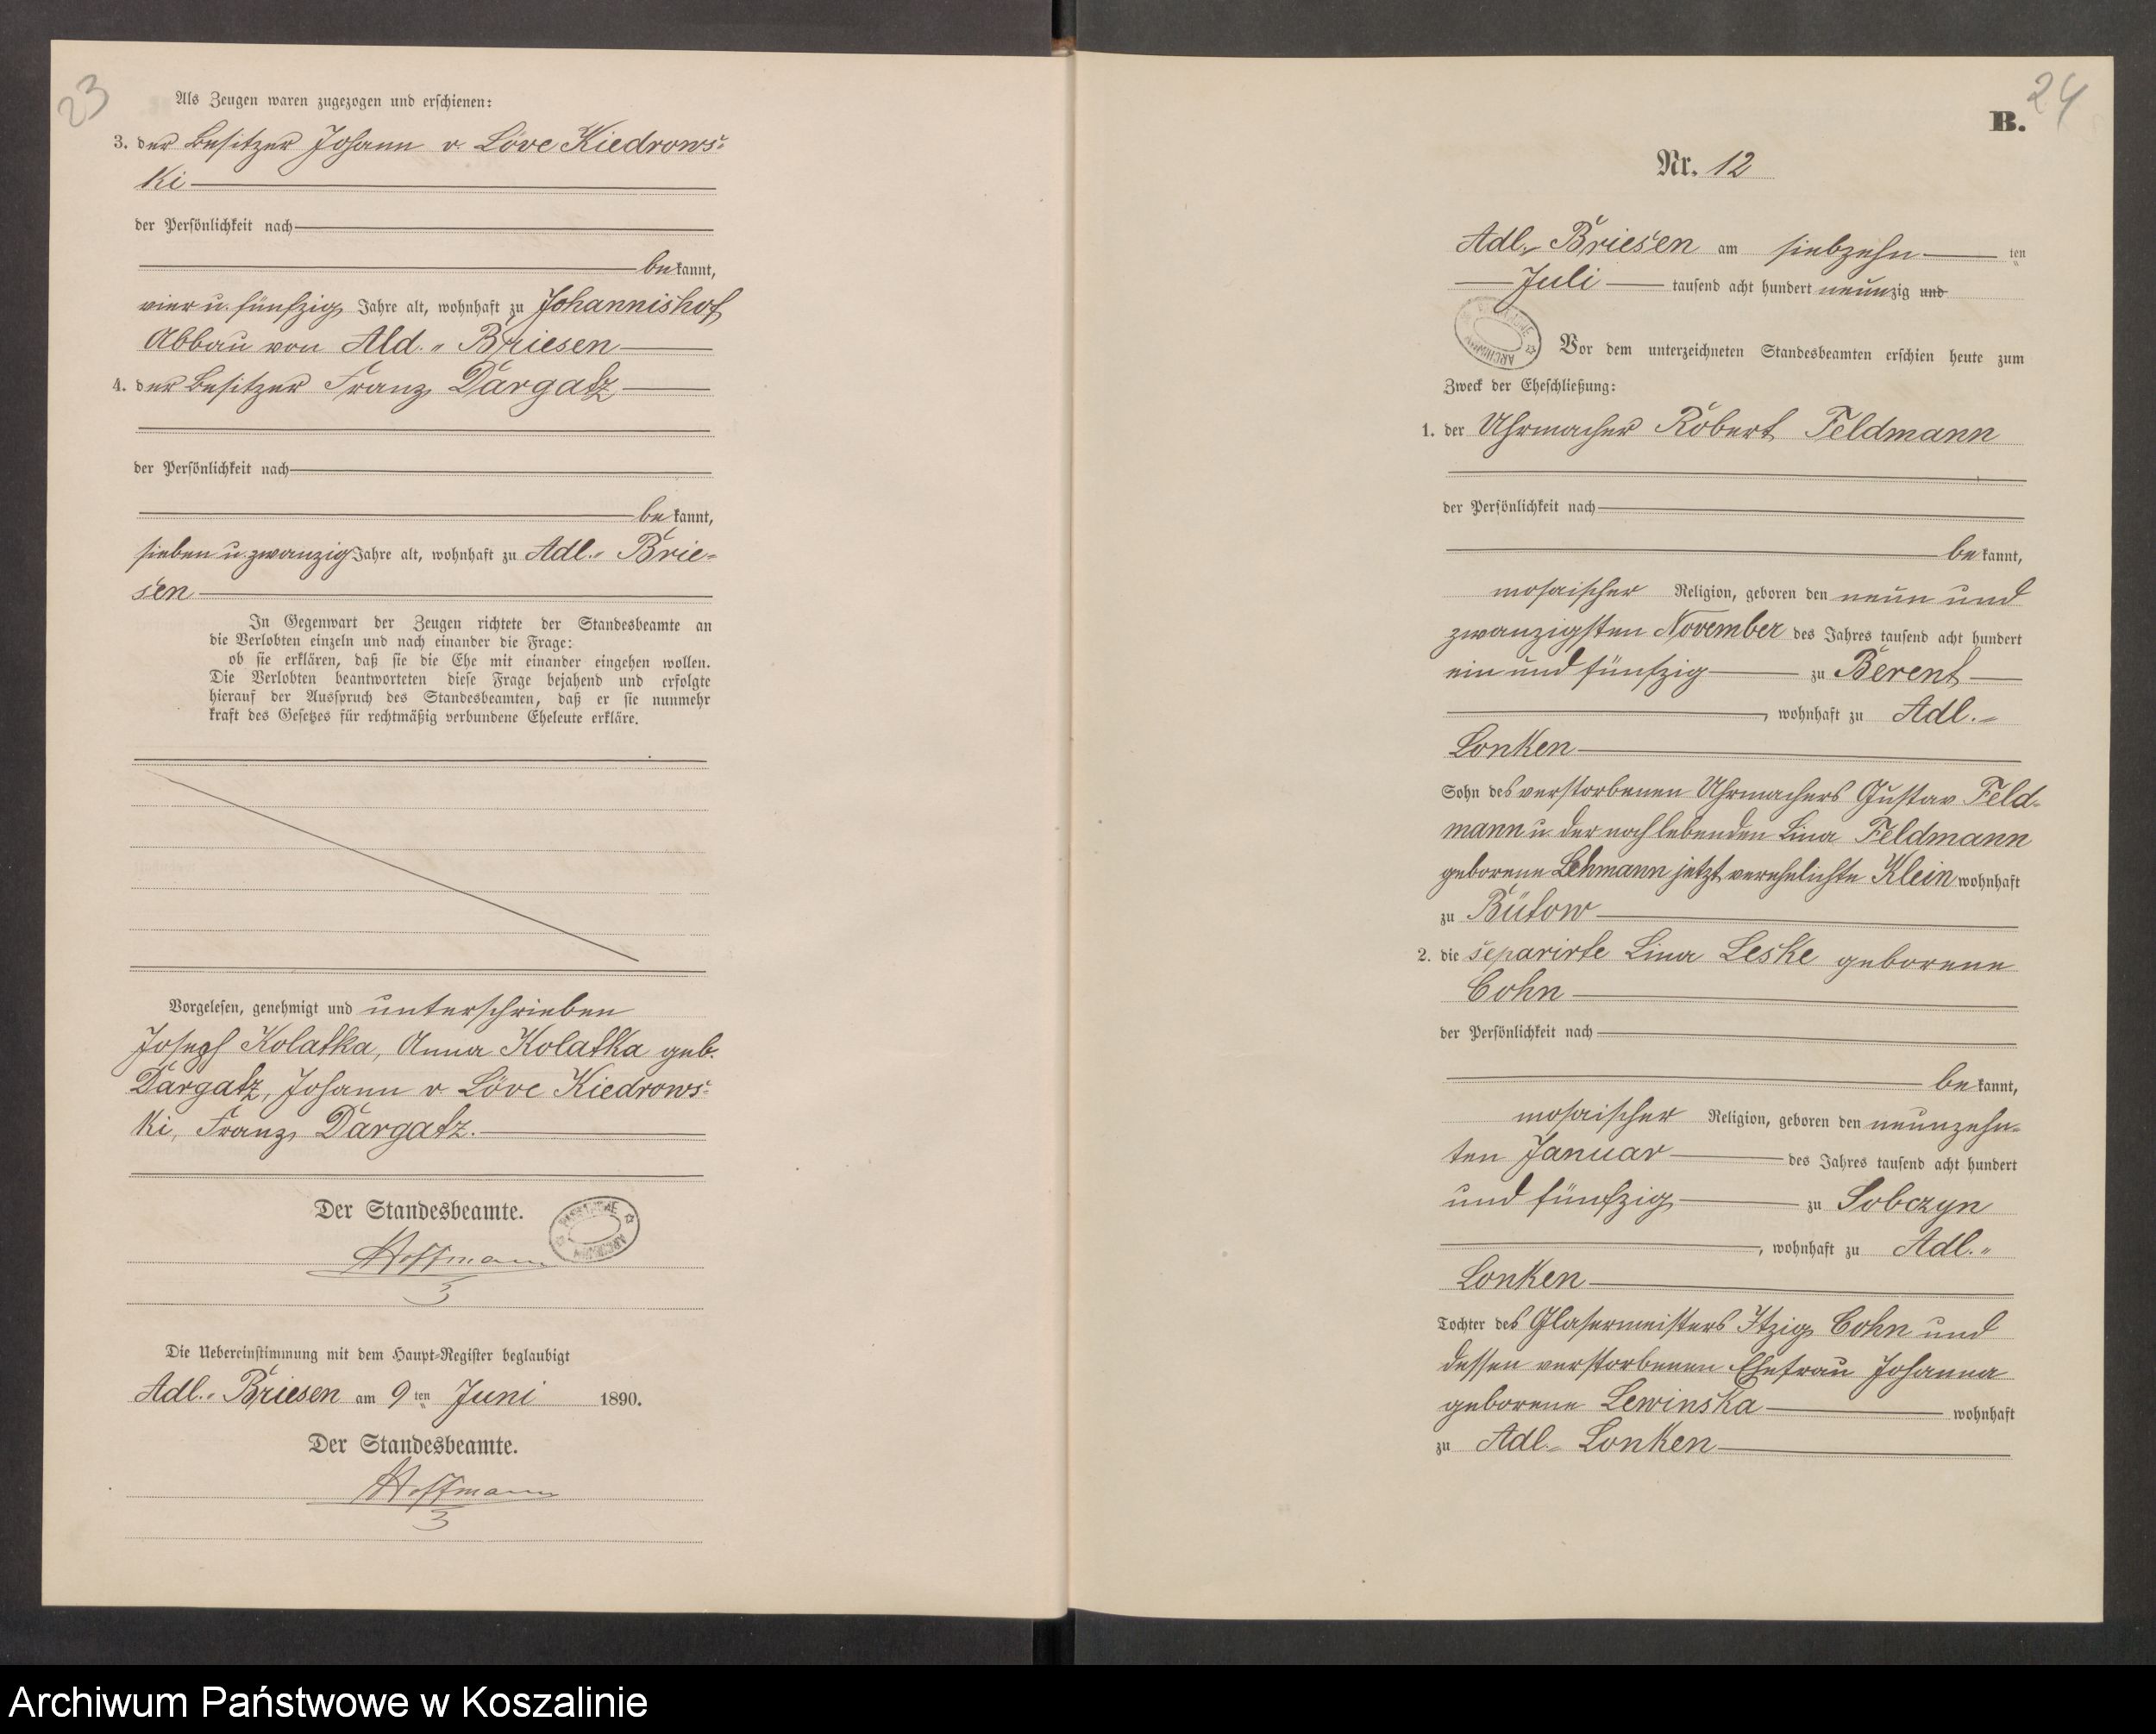 23
Als Zeugen waren zugezogen und erschienen:
3. der Besitzer Johann v. Löve Kiedrows-
ki
der Persönlichkeit nach
bekannt,
vier u. fünfzig Jahre alt, wohnhaft zu Johannishof
Abbau von Ald.= Briesen
4. der Besitzer Franz Dargatz
der Persönlichkeit nach
bekannt,
sieben u. zwanzig Jahre alt, wohnhaft zu Adl.= Brie-
sen
In Gegenwart der Zeugen richtete der Standesbeamte an
die Verlobten einzeln und nach einander die Frage:
ob sie erklären, daß sie die Ehe mit einander eingehen wollen.
Die Verlobten beantworteten diese Frage bejahend und erfolgte
hierauf der Ausspruch des Standesbeamten, daß er sie nunmehr
kraft des Gesetzes für rechtmäßig verbundene Eheleute erkläre.
Vorgelesen, genehmigt und unterschrieben
Joseph Kolatka, Anna Kolatka geb.
Dargatz, Johann v. Löve Kiedrows-
ki, Franz Dargatz.
Der Standesbeamte.
Hoffmann
Die Uebereinstimmung mit dem Haupt-Register beglaubigt
Adl.= Briesen am 9 ten Juni 1890.
Der Standesbeamte.
Hoffmann
24
B.
Nr. 12
Adl.= Briesen am siebzehn ten
Juli tausend acht hundert neunzig und
Vor dem unterzeichneten Standesbeamten erschien heute zum
Zweck der Eheschließung:
1. der Uhrmacher Robert Feldmann
der Persönlichkeit nach
bekannt,
mosaischer Religion, geboren den neun und
zwanzigsten November des Jahres tausend acht hundert
ein und fünfzig zu Berent
, wohnhaft zu Adl.=
Lonken
Sohn des verstorbenen Uhrmachers Gustav Feld-
mann u. der noch lebenden Lina Feldmann
geborene Lehmann jetzt verehelichte Klein wohnhaft
zu Bütow
2. die separirte Lina Leske geborene
Cohn
der Persönlichkeit nach
bekannt,
mosaischer Religion, geboren den neunzehn-
ten Januar des Jahres tausend acht hundert
und fünfzig zu Sobczyn
, wohnhaft zu Adl.=
Lonken
Tochter des Glasermeisters Itzig Cohn und
dessen verstorbenen Ehefrau Johanna
geborene Lewinska wohnhaft
zu Adl.= Lonken
Archiwum Państwowe w Koszalinie